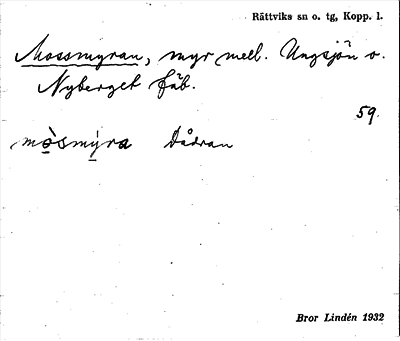 Rättviks sn o. tg, Kopp. l.
Mossmyran, myr mell. Ungsjön o.
Nyberget fäb.
59.
mò̲smý̲ra Dådran
Bror Lindén 1932